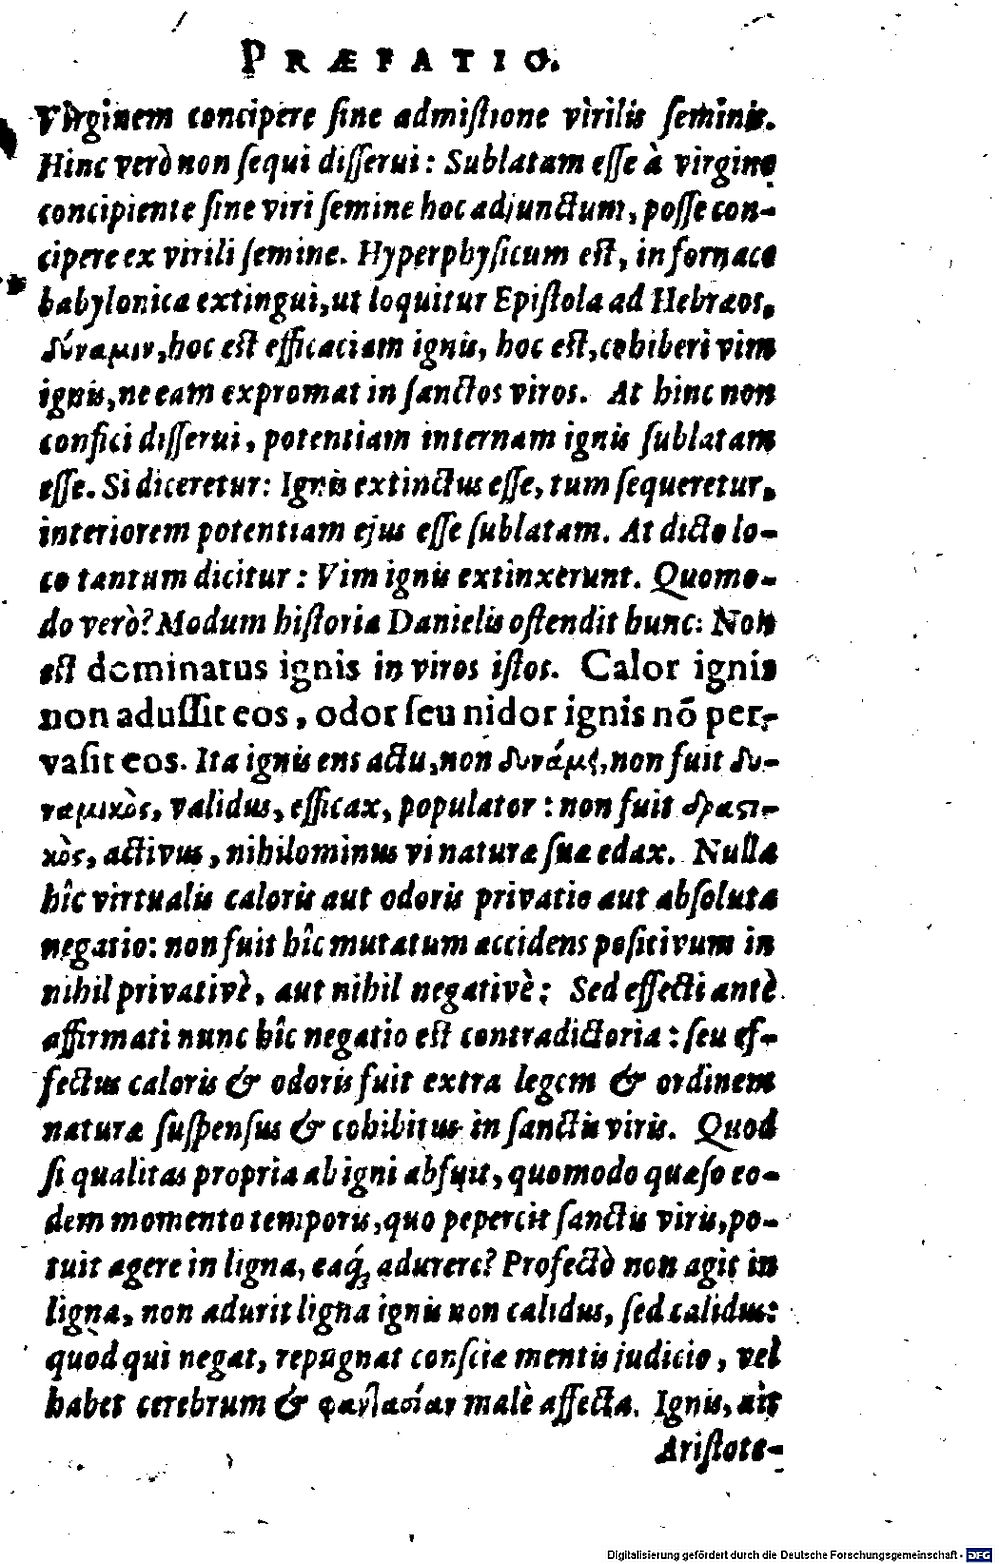 PRÆFATIO.
Virginem concipere ſine admiſtione virilis ſeminis.
Hinc verò non ſequi diſſerui: Sublatam eſſe à virgine
concipiente ſine viri ſemine hoc adjunctum, poſſe con-
cipere ex virili ſemine. Hyperphyſicum eſt, in fornace
babylonica extingui, ut loquitur Epiſtola ad Hebræos,
δύναμιν, hoc eſt efficaciam ignis, hoc eſt, cohiberi vim
ignis, ne eam expromat in ſanctos viros. At hinc non
confici diſſerui, potentiam internam ignis ſublatam
eſſe. Si diceretur: Ignis extinctus eſſe, tum ſequeretur,
interiorem potentiam ejus eſſe ſublatam. At dicto lo-
co tantum dicitur: Vim ignis extinxerunt. Quomo-
do verò? Modum hiſtoria Danielis oſtendit hunc: Non
eſt dominatus ignis in viros iſtos. Calor ignis
non aduſſit eos, odor ſeu nidor ignis nõ per-
vaſit eos. Ita ignis ens actu, non δυνάμει, non fuit δυ-
ναμικὸς, validus, efficax, populator: non fuit δραςι-
κὸς, activus, nihilominus vi naturæ ſuæ edax. Nulla
hîc virtualis caloris aut odoris privatio aut abſoluta
negatio: non fuit hîc mutatum accidens poſitivum in
nihil privativè, aut nihil negativè: Sed effecti antè
affirmati nunc hîc negatio eſt contradictoria: ſeu ef-
fectus caloris & odoris fuit extra legem & ordinem
naturæ ſuſpenſus & cohibitus in ſanctis viris. Quod
ſi qualitas propria ab igni abfuit, quomodo quæſo eo-
dem momento temporis, quo pepercit ſanctis viris, po-
tuit agere in ligna, eaq́; adurere? Profectò non agit in
ligna, non adurit ligna ignis non calidus, ſed calidus:
quod qui negat, repugnat conſciæ mentis judicio, vel
habet cerebrum & φαντασίαν malè affecta. Ignis, ait
Ariſtote-
Digitalisierung gefördert durch die Deutsche Forschungsgemeinschaft - DFG